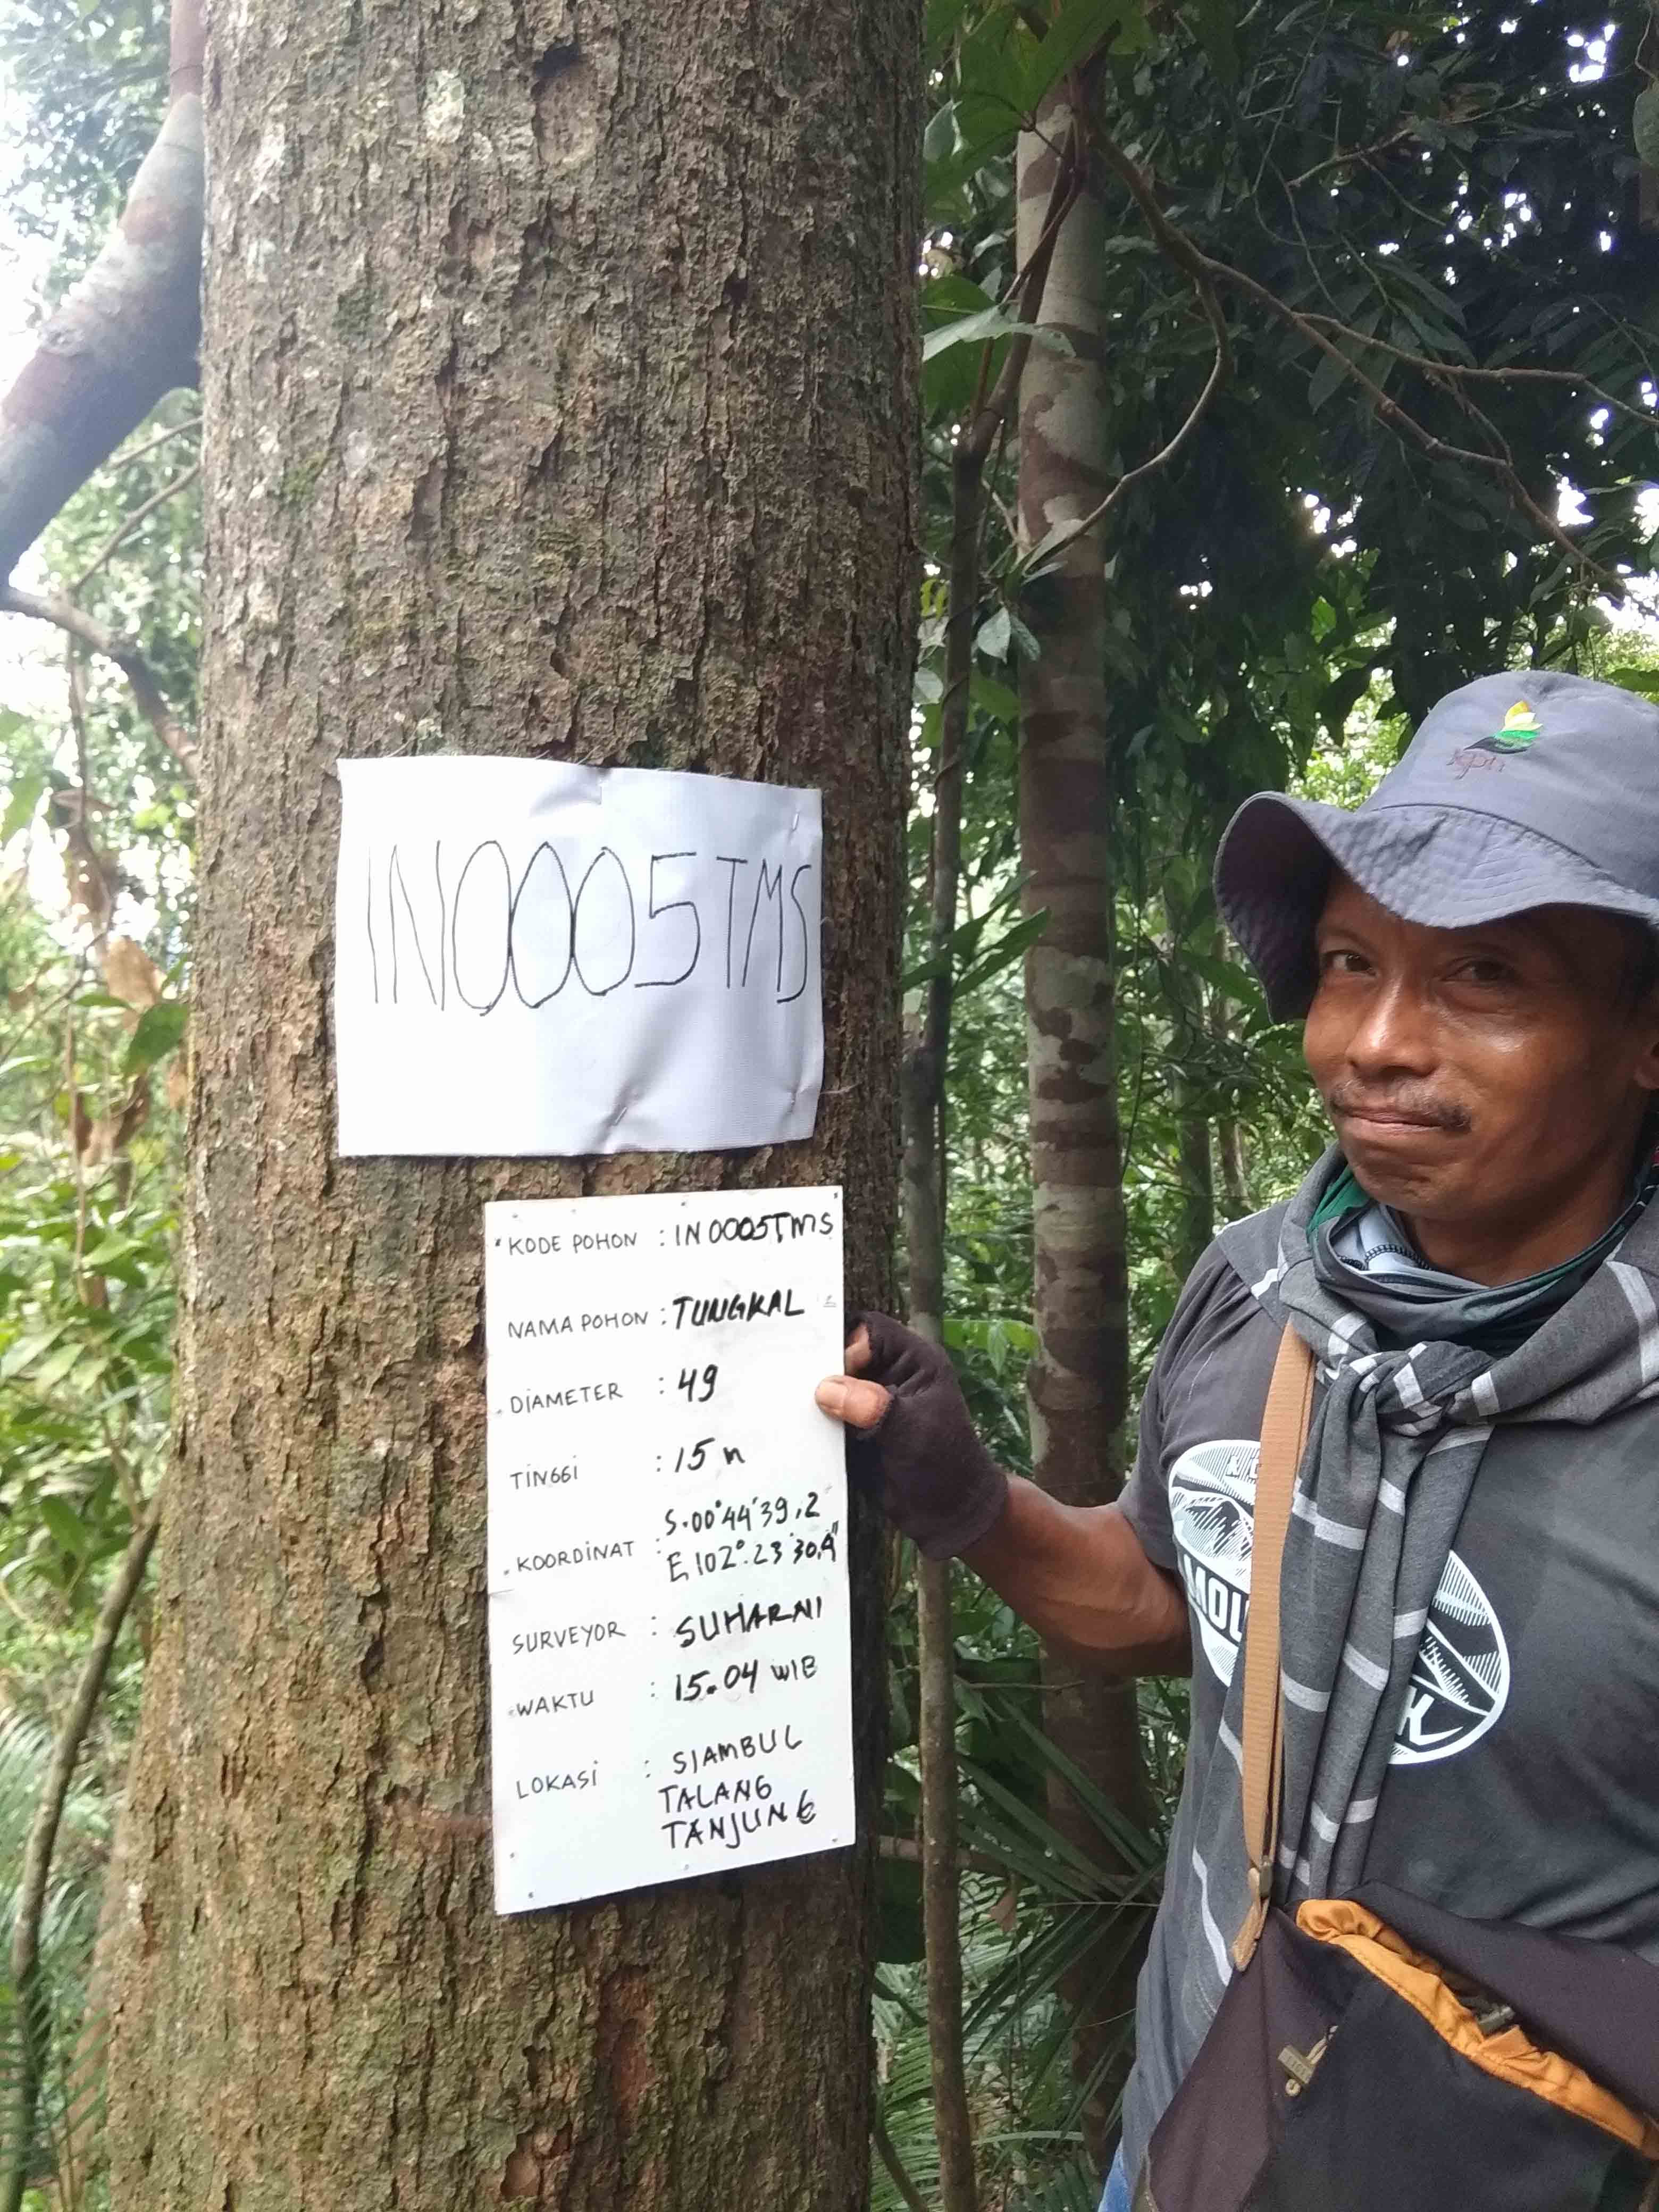 IN0005TMS
KODE POHON : IN0005TMS
NAMA POHON : TUNGKAL
DIAMETER : 49
TINGGI : 15 m
KOORDINAT : S.00°44'39,2
E 102°.23'30,9"
SURVEYOR : SUHARNI
WAKTU : 15.04 WIB
LOKASI : SIAMBUL
TALANG
TANJUNG